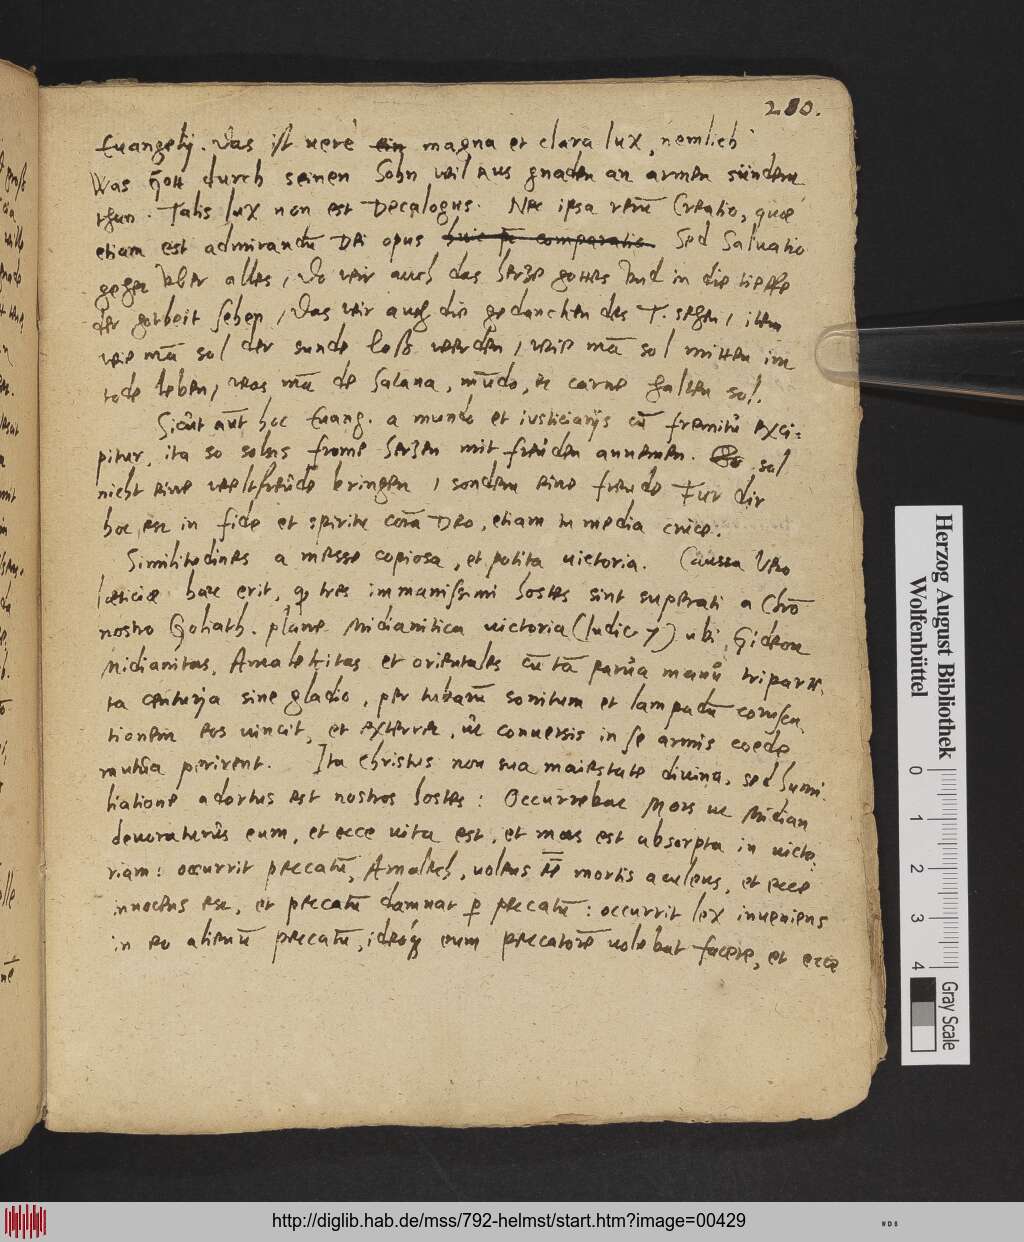 280.
Euangelij. Das ist uere ein magna et clara lux, nemlich
Was Gott durch seinen Sohn weil aus gnaden an armen sündern
thun. Talis lux non est Decalogus. Nec ipsa rerū Creatio, quae
etiam est admirandū Dei opus huic comparatio. Sed Saluatio
gehet vber alles, Do wir auch das hertze gottes vnd in die tieffe
der gotheit sehen, Das wir auch die gedancken des T. sehen, item
wie mā sol der sunde loß werden, wie mā sol mitten im
tode leben, was mā de Satana, mūdo, et carne halten sol.
Sicut aūt hoc Euang. a mundo et iusticiarijs cū fremitu exci=
pitur, ita so solens frome hertzen mit freuden annemen. Es sol
nicht eine weltfreude bringen, sondern eine freude fur dir
hoc est in fide et spiritu corā Deo, etiam in media cruce.
Similitudines a messe copiosa, et potita uictoria. Caussa Vero
laeticiae haec erit, q tres immanissimi hostes sint superati a Chrō
nostro Goliath. plane Midianitica uictoria (Iudic 7) ubi Gideon
Midianitas, Amalekitas et orientales cū tā parua manu tripartι
ta centuria sine gladio, per tubarū sonitum et lampadū corusca
tionem eos uincit, et exterret, ut conuersis in se armis coede
mutua perirent. Ita Christus non sua maiestate diuina, sed humi
liatione adortus est nostros hostes: Occurrebat Mors ut Midian
deuoraturus eum, et ecce uita est, et mors est absorpta in uicto
riam: occurrit peccatū, Amalech, uolens mortis aculeus, et ecce
innocens est, et peccatū damnat p peccatū: occurrit lex inueniens
in eo alienū peccatū, ideoq eum peccatorē uolebat facere, et ecce
Herzog August Bibliothek
Wolfenbüttel
0 1 2 3 4
Gray Scale
http://diglib.hab.de/mss/792-helmst/start.htm?image=00429